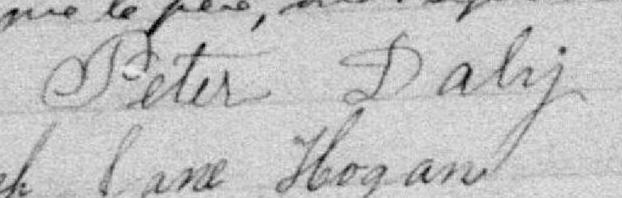 le père,
Peter Daly
Jane Hogan